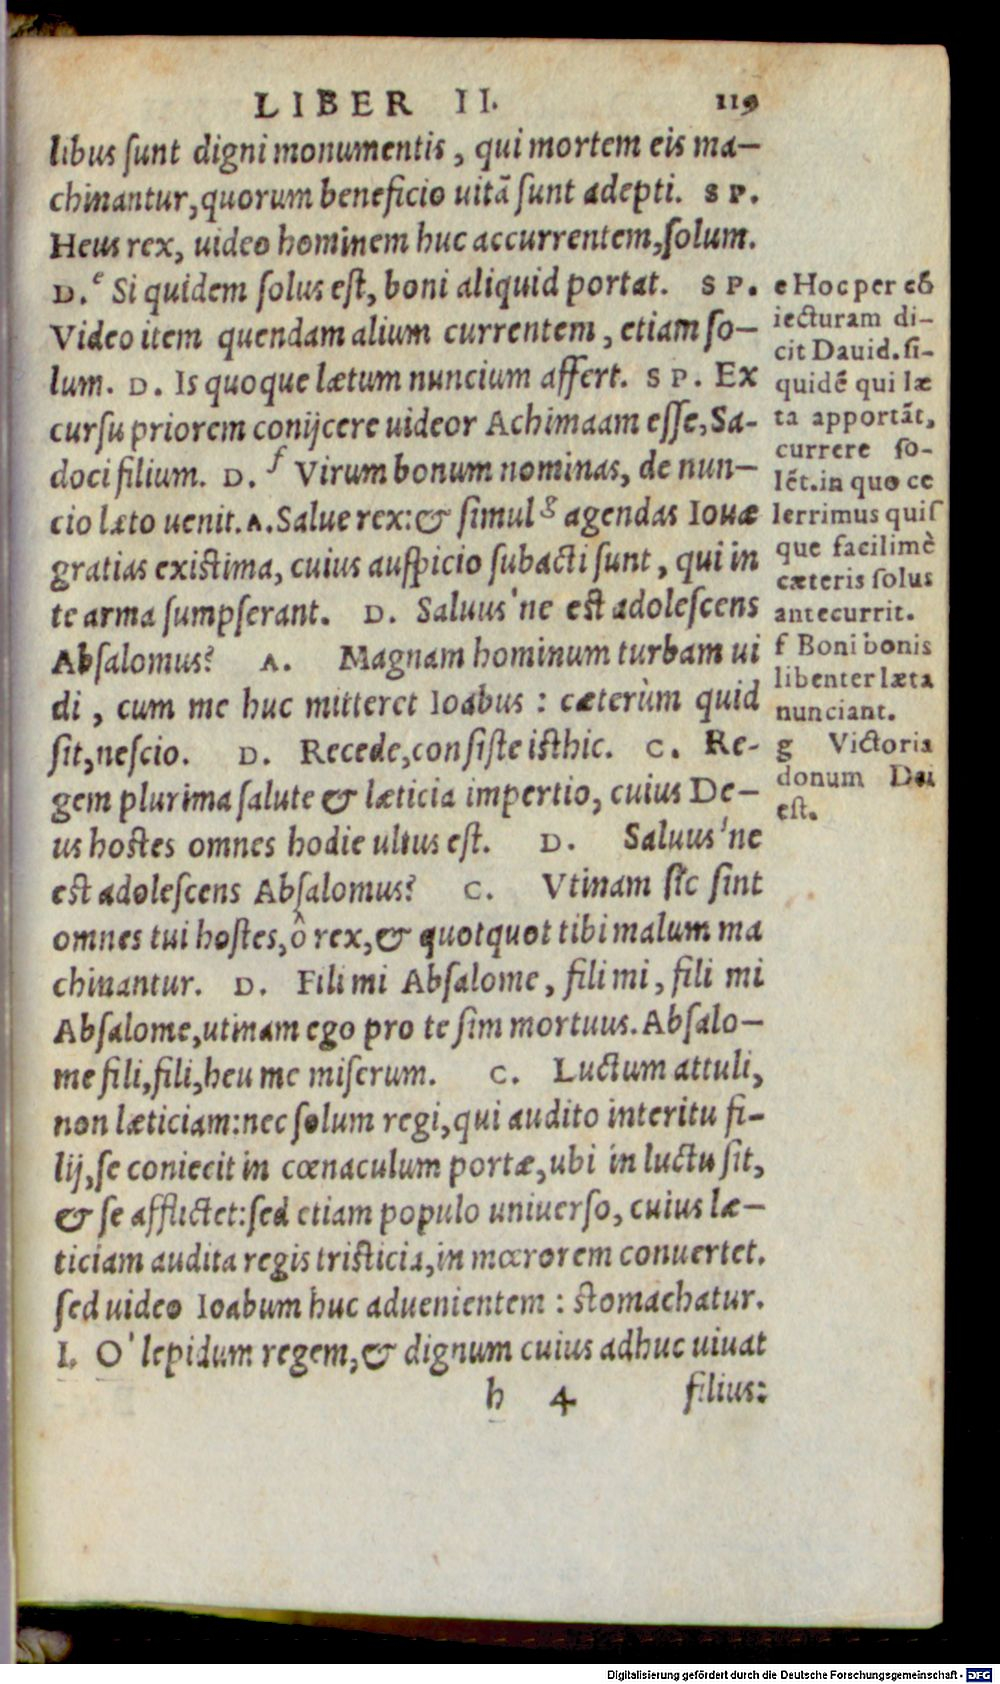 LIBER II. 119
libus sunt digni monumentis, qui mortem eis ma-
chinantur, quorum beneficio uitã sunt adepti. SP.
Heus rex, uideo hominem huc accurrentem, solum.
D. e Si quidem solus est, boni aliquid portat. SP.
Video item quendam alium currentem, etiam so-
lum. D. Is quoque lætum nuncium affert. SP. Ex
cursu priorem conijcere uideor Achimaam esse, Sa-
doci filium. D. f Virum bonum nominas, de nun-
cio læto uenit. A. Salue rex: & simul g agendas Iouæ
gratias existima, cuius auspicio subacti sunt, qui in
te arma sumpserant. D. Saluus'ne est adolescens
Absalomus? A. Magnam hominum turbam ui
di, cum me huc mitteret Ioabus: cæterùm quid
sit, nescio. D. Recede, consiste isthic. C. Re-
gem plurima salute & læticia impertio, cuius De-
us hostes omnes hodie ultus est. D. Saluus'ne
est adolescens Absalomus? C. Vtinam sic sint
omnes tui hostes, ô rex, & quotquot tibi malum ma
chinantur. D. Fili mi Absalome, fili mi, fili mi
Absalome, utinam ego pro te sim mortuus. Absalo-
me fili, fili, heu me miserum. C. Luctum attuli,
non læticiam: nec solum regi, qui audito interitu fi-
lij, se coniecit in cœnaculum portæ, ubi in luctu sit,
& se afflictet: sed etiam populo uniuerso, cuius læ-
ticiam audita regis tristicia, in mœrorem conuertet.
sed uideo Ioabum huc aduenientem: stomachatur.
I. O' lepidum regem, & dignum cuius adhuc uiuat
h 4 filius:
e Hoc per cõ
iecturam di-
cit Dauid. si-
quidẽ qui læ
ta apportãt,
currere so-
lẽt. in quo ce
lerrimus quis
que facilimè
cæteris solus
antecurrit.
f Boni bonis
libenter læta
nunciant.
g Victoria
donum Dei
est.
Digitalisierung gefördert durch die Deutsche Forschungsgemeinschaft - DFG